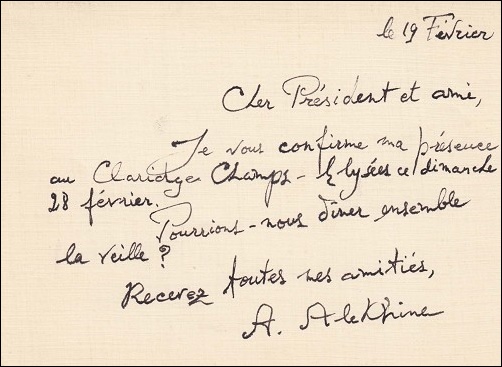 le 19 Février
Cher Président et ami,
Je vous confirme ma présence
au Claridge Champs-Elysées ce dimanche
28 février.
Pourrions-nous dîner ensemble
la veille ?
Recevez toutes mes amitiés,
A. Alekhine